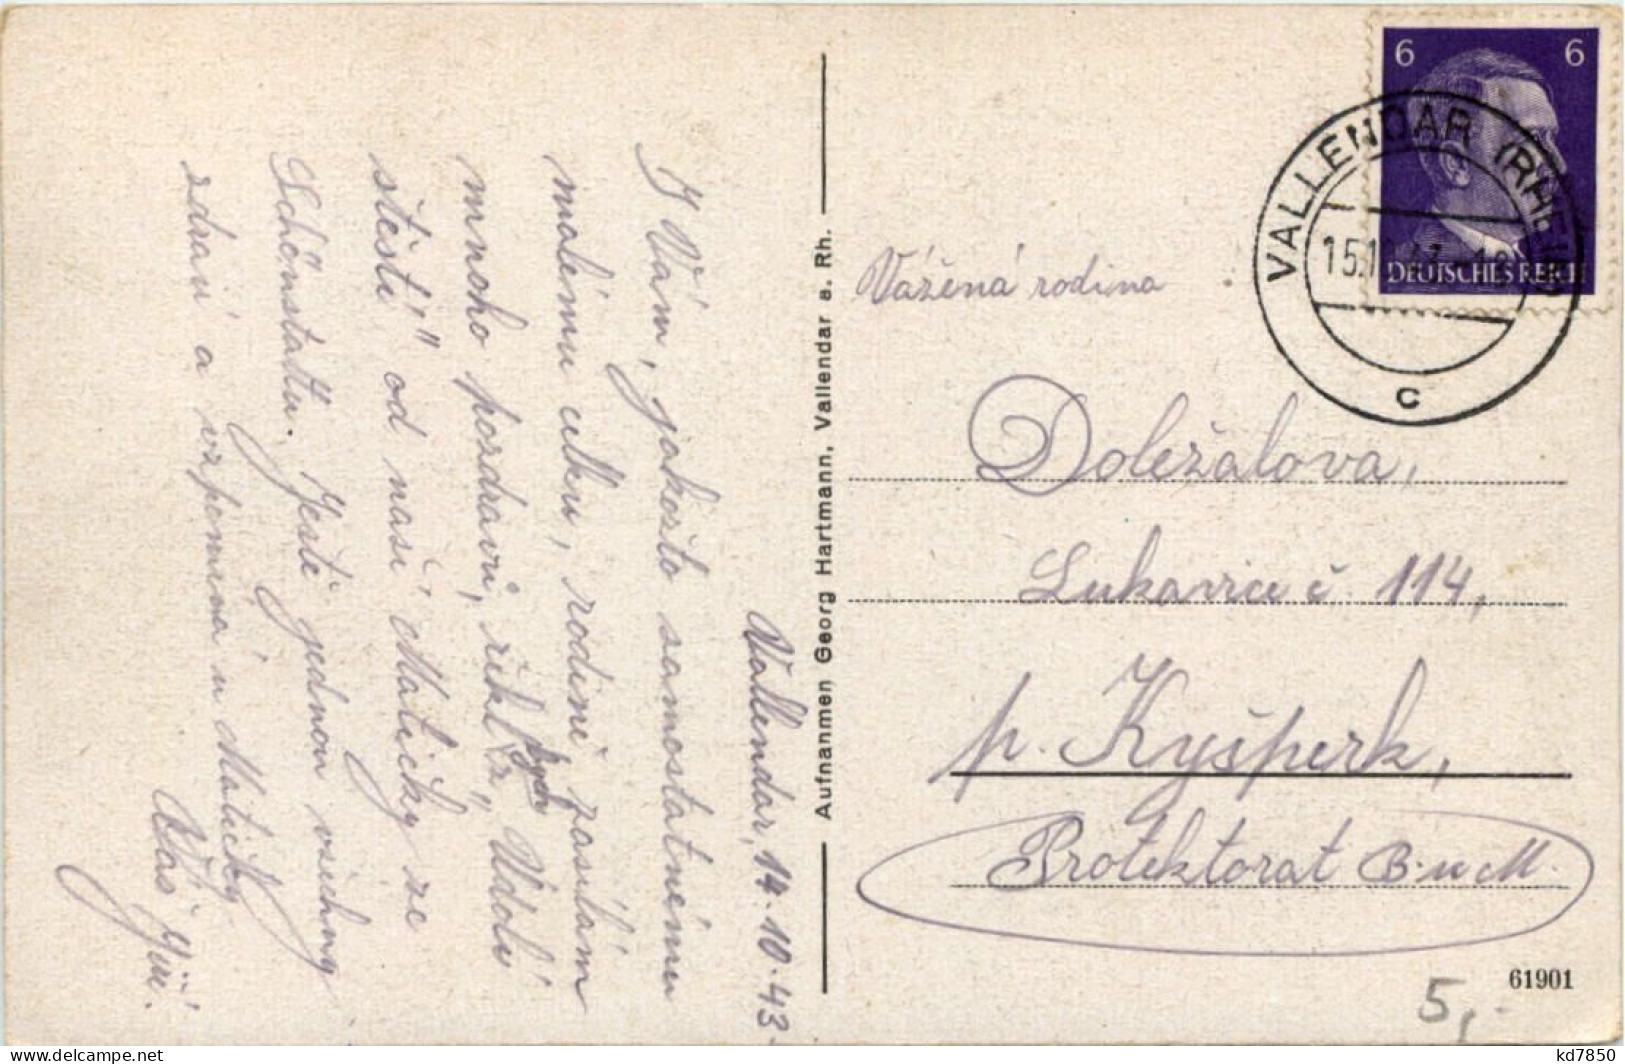 Vallendar, 14.10.43
I Vám, jakožto samostatnému
malému celku, rodině zasílám
mnoho pozdravů, řekl bych z „Údolí
štěstí" od naší Matičky ze
Schönstattu. Ještě jednou všichny
zdraví a vzpomíná u Matičky
Váš Jiří.
Aufnahmen Georg Hartmann, Vallendar a. Rh.
6 6
DEUTSCHES REICH
VALLENDAR (RHEIN)
c
Vážená rodina
Doležalova,
Lukavice č. 114,
p. Kyšperk,
Protektorat B. u M.
61901
5,-
delcampe.net
kd7850